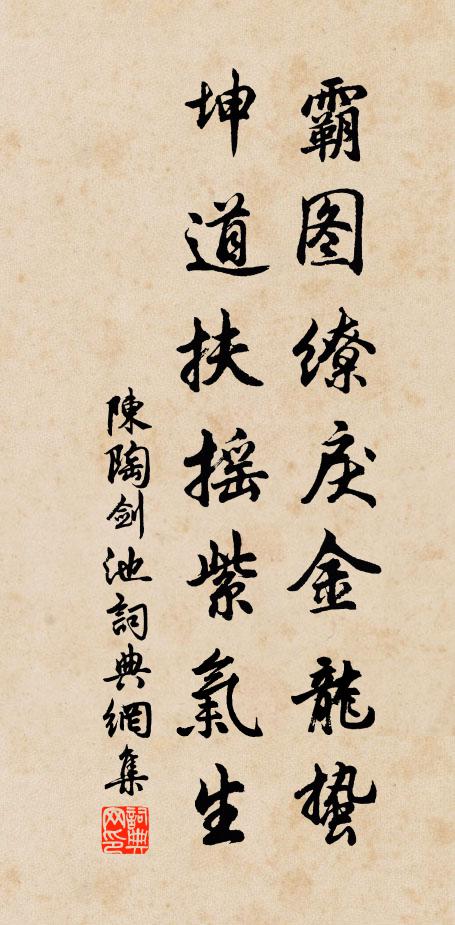 霸图缭戾金龍蛰
坤道扶摇紫氣生
陳陶劍池詞典網集
詞典网印